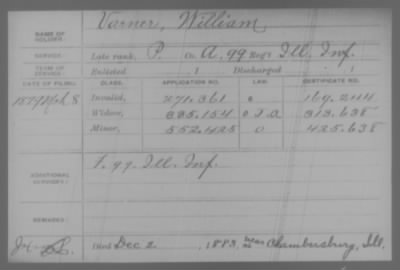 NAME OF SOLDIER: Varner, William
SERVICE: Late rank, P. Co. A, 99 Reg't Ill. Inf.
TERM OF SERVICE: Enlisted , 1 Discharged , 1
DATE OF FILING. CLASS. APPLICATION NO. LAW. CERTIFICATE NO.
1879 Mch 8 Invalid, 271.361 169.244
Widow, 335.154 313.638
Minor, 552.425 425.638
ADDITIONAL SERVICES: F. 99 Ill. Inf.
REMARKS:
Died Dec 2, 1883, near Chambersburg, Ill.